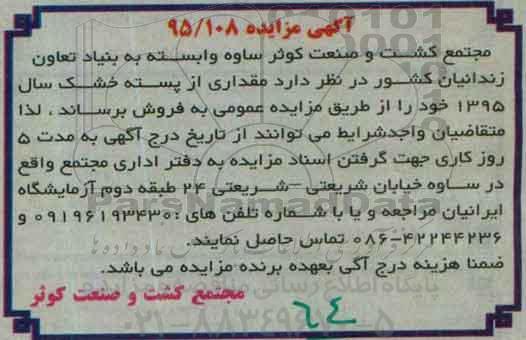 آگهی مزایده ۹۵/۱۰۸
مجتمع کشت و صنعت کوثر ساوه وابسته به بنیاد تعاون
زندانیان کشور در نظر دارد مقداری از پسته خشک سال
۱۳۹۵ خود را از طریق مزایده عمومی به فروش برساند ، لذا
متقاضیان واجدشرایط می توانند از تاریخ درج آگهی به مدت ۵
روز کاری جهت گرفتن اسناد مزایده به دفتر اداری مجتمع واقع
در ساوه خیابان شریعتی -شریعتی ۲۴ طبقه دوم آزمایشگاه
ایرانیان مراجعه و یا با شماره تلفن های : ۰۹۱۹۶۱۹۳۴۳۰ و
۰۸۶-۴۲۲۴۴۲۳۶ تماس حاصل نمایند.
ضمنا هزینه درج آگی بعهده برنده مزایده می باشد.
مجتمع کشت و صنعت کوثر
٦٤
ParsNamadData
پایگاه اطلاع رسانی
۰۲۱-۸۸۳۴۹۶۷۰-۵